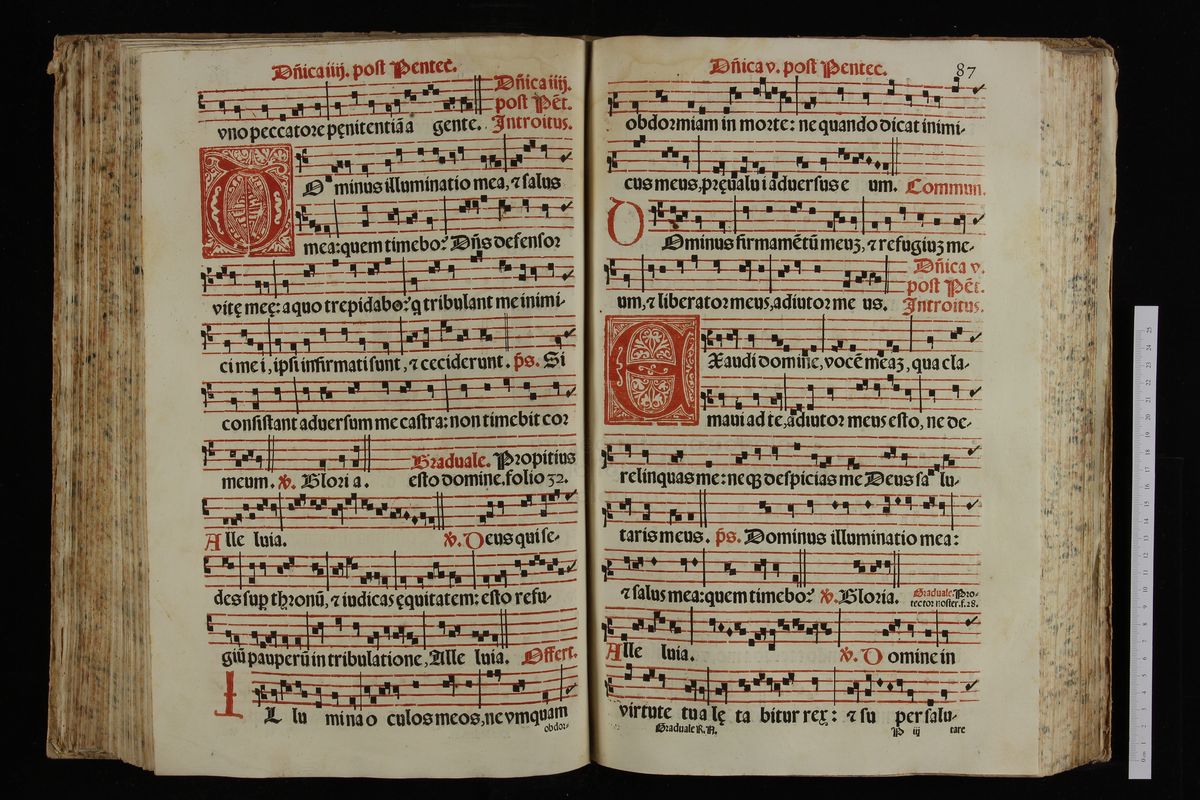 Dñica iiij. post Pentec̃.
Dñica iiij.
post Pẽt.
Introitus.
vno peccatore pęnitentiã a gente.
DOminus illuminatio mea, ⁊ salus
mea: quem timebo? Dñs defensor
vitę meę: a quo trepidabo? q̃ tribulant me inimi-
ci me i, ipsi infirmati sunt, ⁊ ceciderunt. p̃s. Si
consistant aduersum me castra: non timebit cor
meum. ℣. Glori a. Graduale. Propitius
esto domine. folio 32.
Alle luia. ℣. Deus qui se-
des sup̱ thronũ, ⁊ iudicas ęquitatem: esto refu-
giũ pauperũ in tribulatione, Alle luia. Offert.
IL lu mina o culos meos, ne vmquam
obdor-
Dñica v. post Pentec̃.
87
obdormiam in morte: ne quando dicat inimi-
cus meus, pręualu i aduersus e um. Commun.
DOminus firmamẽtũ meuʒ, ⁊ refugiuʒ me-
Dñica v.
post Pẽt.
Introitus.
um, ⁊ liberator meus, adiutor me us.
EXaudi domine, vocẽ meaʒ, qua cla-
maui ad te, adiutor meus esto, ne de-
relinquas me: neqʒ despicias me Deus sa lu-
taris meus. p̃s. Dominus illuminatio mea:
⁊ salus mea: quem timebo? ℣. Gloria. Graduale. Pro-
tector noster. f. 28.
Alle luia. ℣. D omine in
virtute tua lę ta bitur rex: ⁊ su per salu-
Graduale R. A. P iij tare